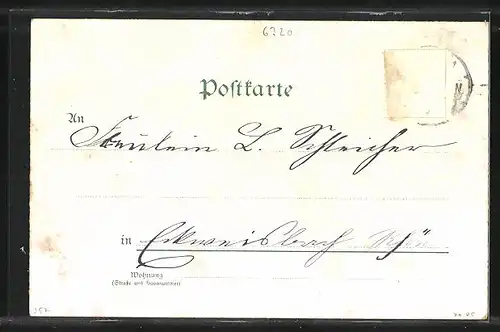 6320
Postkarte
An
Fräulein L. Schleicher
in Eckweisbach
Wohnung
(Straße und Hausnummer)